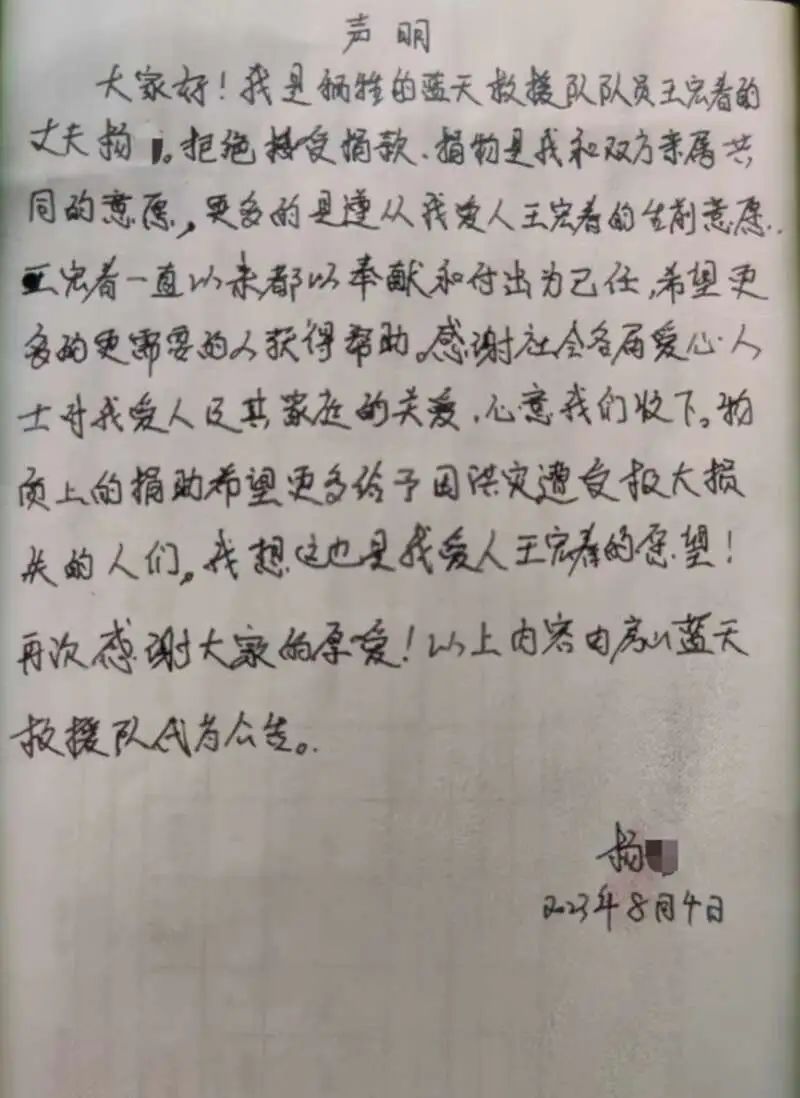 声明
大家好！我是牺牲的蓝天救援队队员王宏春的
丈夫杨 。拒绝接受捐款、捐物是我和双方亲属共
同的意愿，更多的是遵从我爱人王宏春的生前意愿.
王宏春一直以来都以奉献和付出为己任，希望更
多的更需要的人获得帮助。感谢社会各届爱心人
士对我爱人及其家庭的关爱、心意我们收下。物
质上的捐助希望更多给予因洪灾遭受救大损
失的人们。我想这也是我爱人王宏春的愿望！
再次感谢大家的厚爱！以上内容由房山蓝天
救援队代为公告。
杨
2023年8月4日